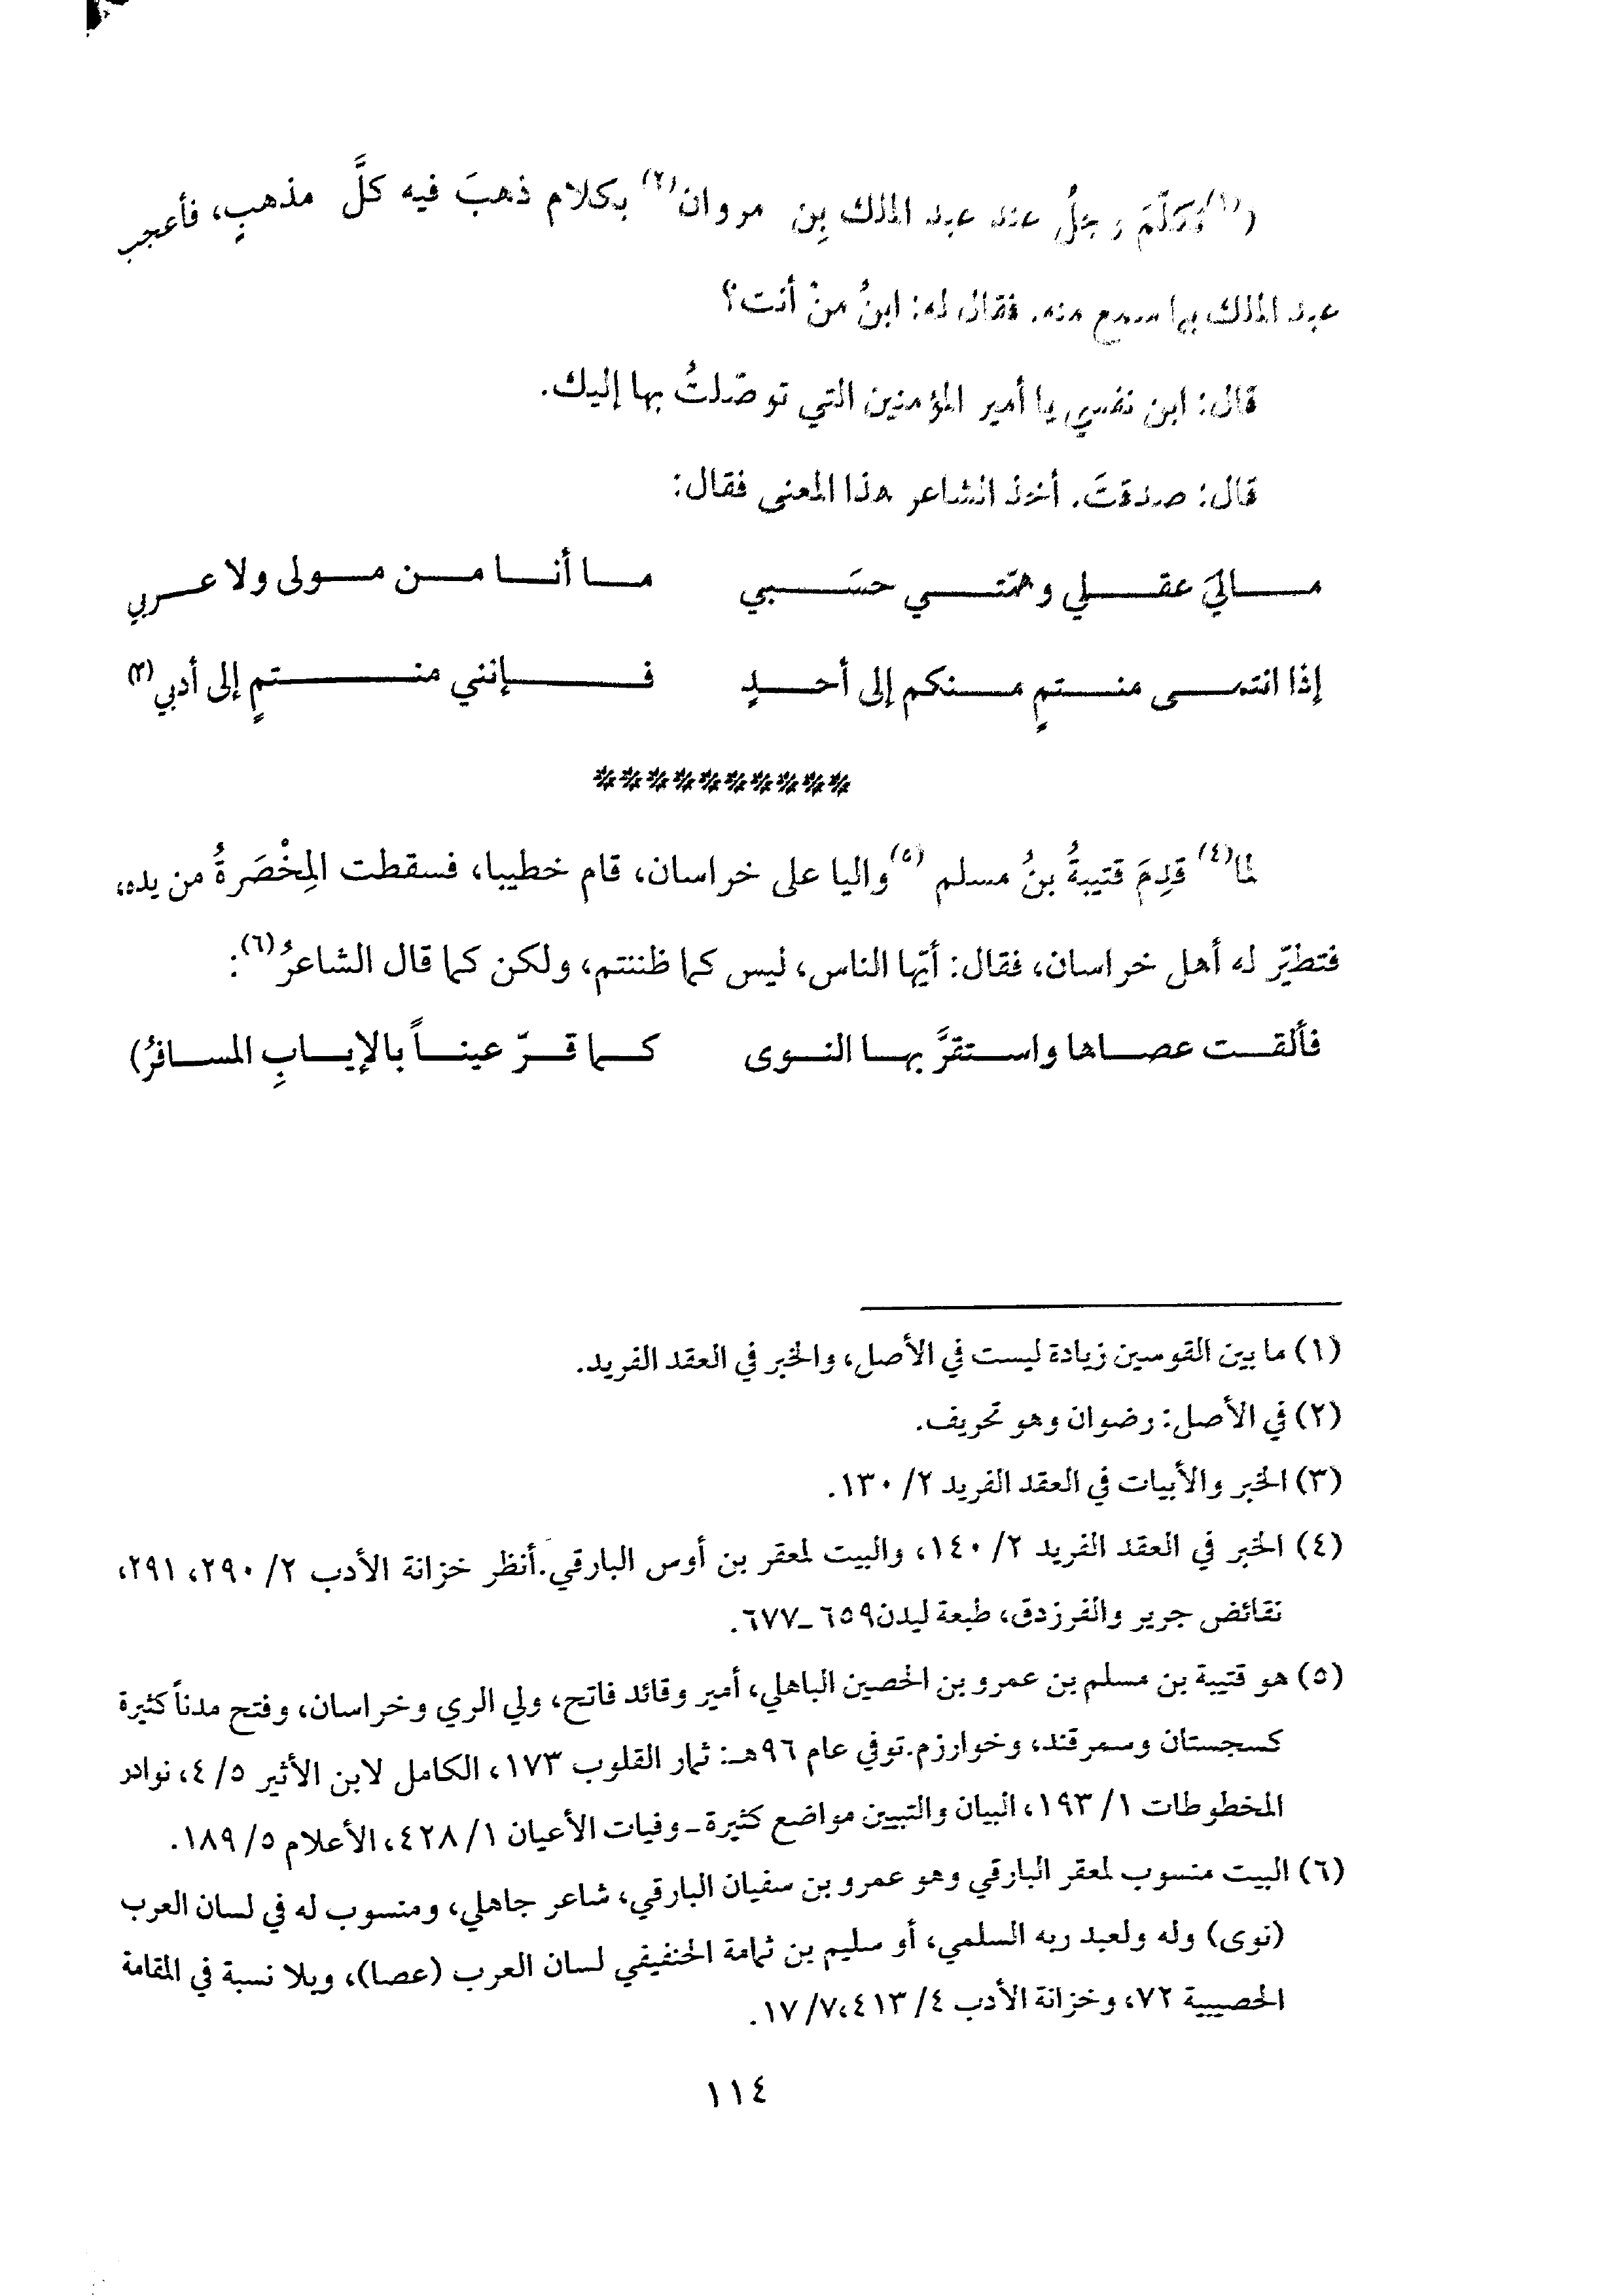 (⁽١⁾تكلّمَ رجلٌ عند عبد الملك بِن مروان⁽٢⁾ بكلام ذهبَ فيه كلَّ مذهبٍ، فأعجب
عبد الملك بما سمع منه. فقال له: ابنُ منْ أنت؟
قال: ابن نفسي يا أمير المؤمنين التي توصّلتُ بها إليك.
قال: صدقتَ. أخذ الشاعر هذا المعنى فقال:
مالي عقلي وهمّتي حسَبي ما أنا من مولى ولا عربي
إذا انتمى منتمٍ منكم إلى أحدٍ فإنني منتمٍ إلى أدبي ⁽٣⁾
**********
لما⁽٤⁾ قدِمَ قتيبةُ بنُ مسلم ⁽٥⁾ واليا على خراسان، قام خطيبا، فسقطت المِخْصَرةُ من يده،
فتطيّر له أهل خراسان، فقال: أيّها الناس، ليس كما ظننتم، ولكن كما قال الشاعرُ⁽٦⁾:
فألقت عصاها واستقرَّ بها النوى كما قرّ عيناً بالإيابِ المسافرُ)
(١) ما بين القوسين زيادة ليست في الأصل، والخبر في العقد الفريد.
(٢) في الأصل: رضوان وهو تحريف.
(٣) الخبر والأبيات في العقد الفريد ٢/ ١٣٠.
(٤) الخبر في العقد الفريد ٢/ ١٤٠، والبيت لمعقر بن أوس البارقي.أنظر خزانة الأدب ٢/ ٢٩٠، ٢٩١،
نقائض جرير والفرزدق، طبعة ليدن٦٥٩ـ٦٧٧.
(٥) هو قتيبة بن مسلم بن عمرو بن الحصين الباهلي، أمير وقائد فاتح، ولي الري وخراسان، وفتح مدناً كثيرة
كسجستان وسمرقند، وخوارزم.توفي عام ٩٦هـ: ثمار القلوب ١٧٣، الكامل لابن الأثير ٥/ ٤، نوادر
المخطوطات ١/ ١٩٣، البيان والتبيين مواضع كثيرة ـ وفيات الأعيان ١/ ٤٢٨، الأعلام ٥/ ١٨٩.
(٦) البيت منسوب لمعقر البارقي وهو عمرو بن سفيان البارقي، شاعر جاهلي، ومنسوب له في لسان العرب
(نوى) وله ولعبد ربه السلمي، أو سليم بن ثمامة الحنفيفي لسان العرب (عصا)، وبلا نسبة في المقامة
الحصيبية ٧٢، وخزانة الأدب ٤/ ٤١٣،٧/ ١٧.
١١٤